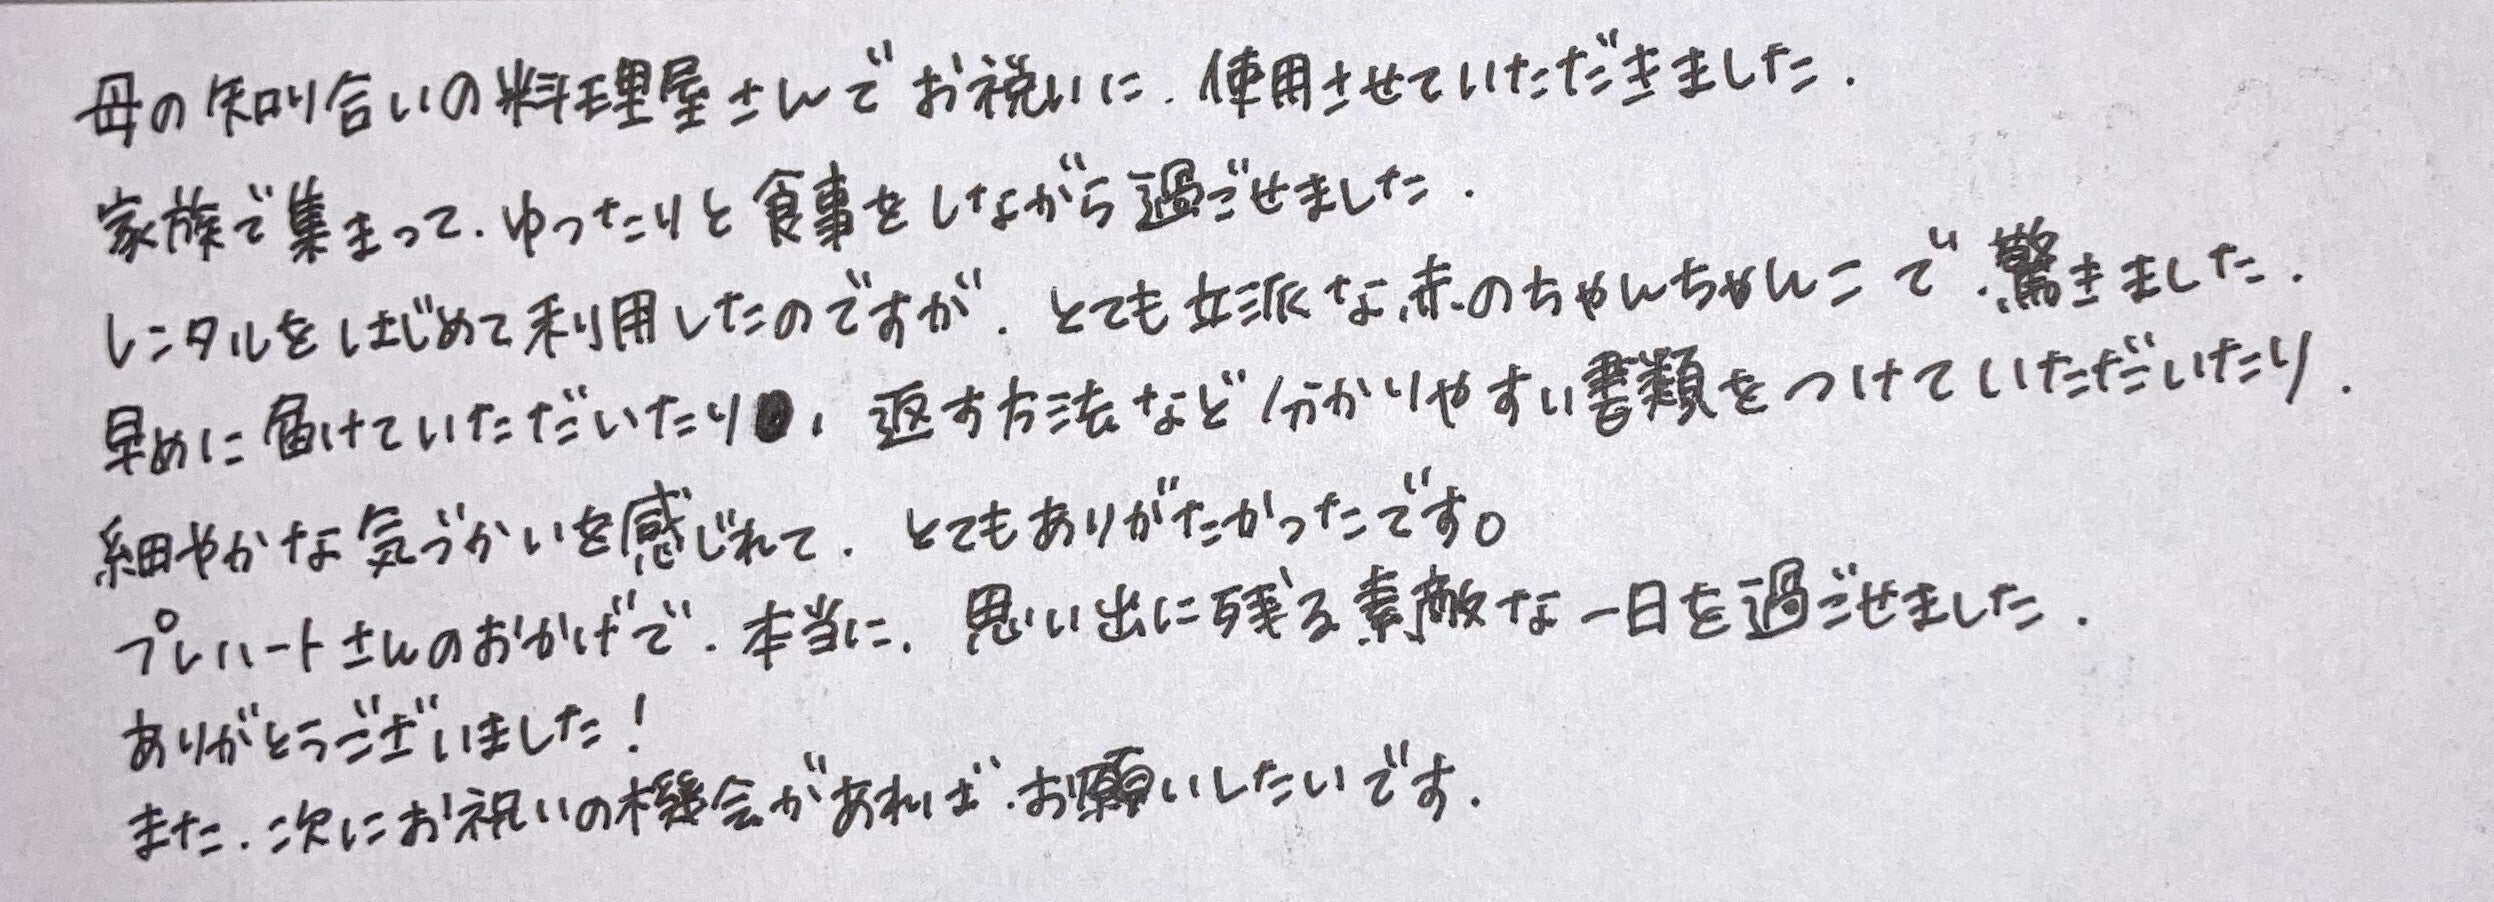 母の知り合いの料理屋さんでお祝いに、使用させていただきました。
家族で集まって、ゆったりと食事をしながら過ごせました。
レンタルをはじめて利用したのですが、とても立派な赤のちゃんちゃんこで、驚きました。
早めに届けていただいたり、返す方法など分かりやすい書類をつけていただいたり、
細やかな気づかいを感じれて、とてもありがたかったです。
プレハートさんのおかげで、本当に、思い出に残る素敵な一日を過ごせました。
ありがとうございました!
また、次にお祝いの機会があれば、お願いしたいです。